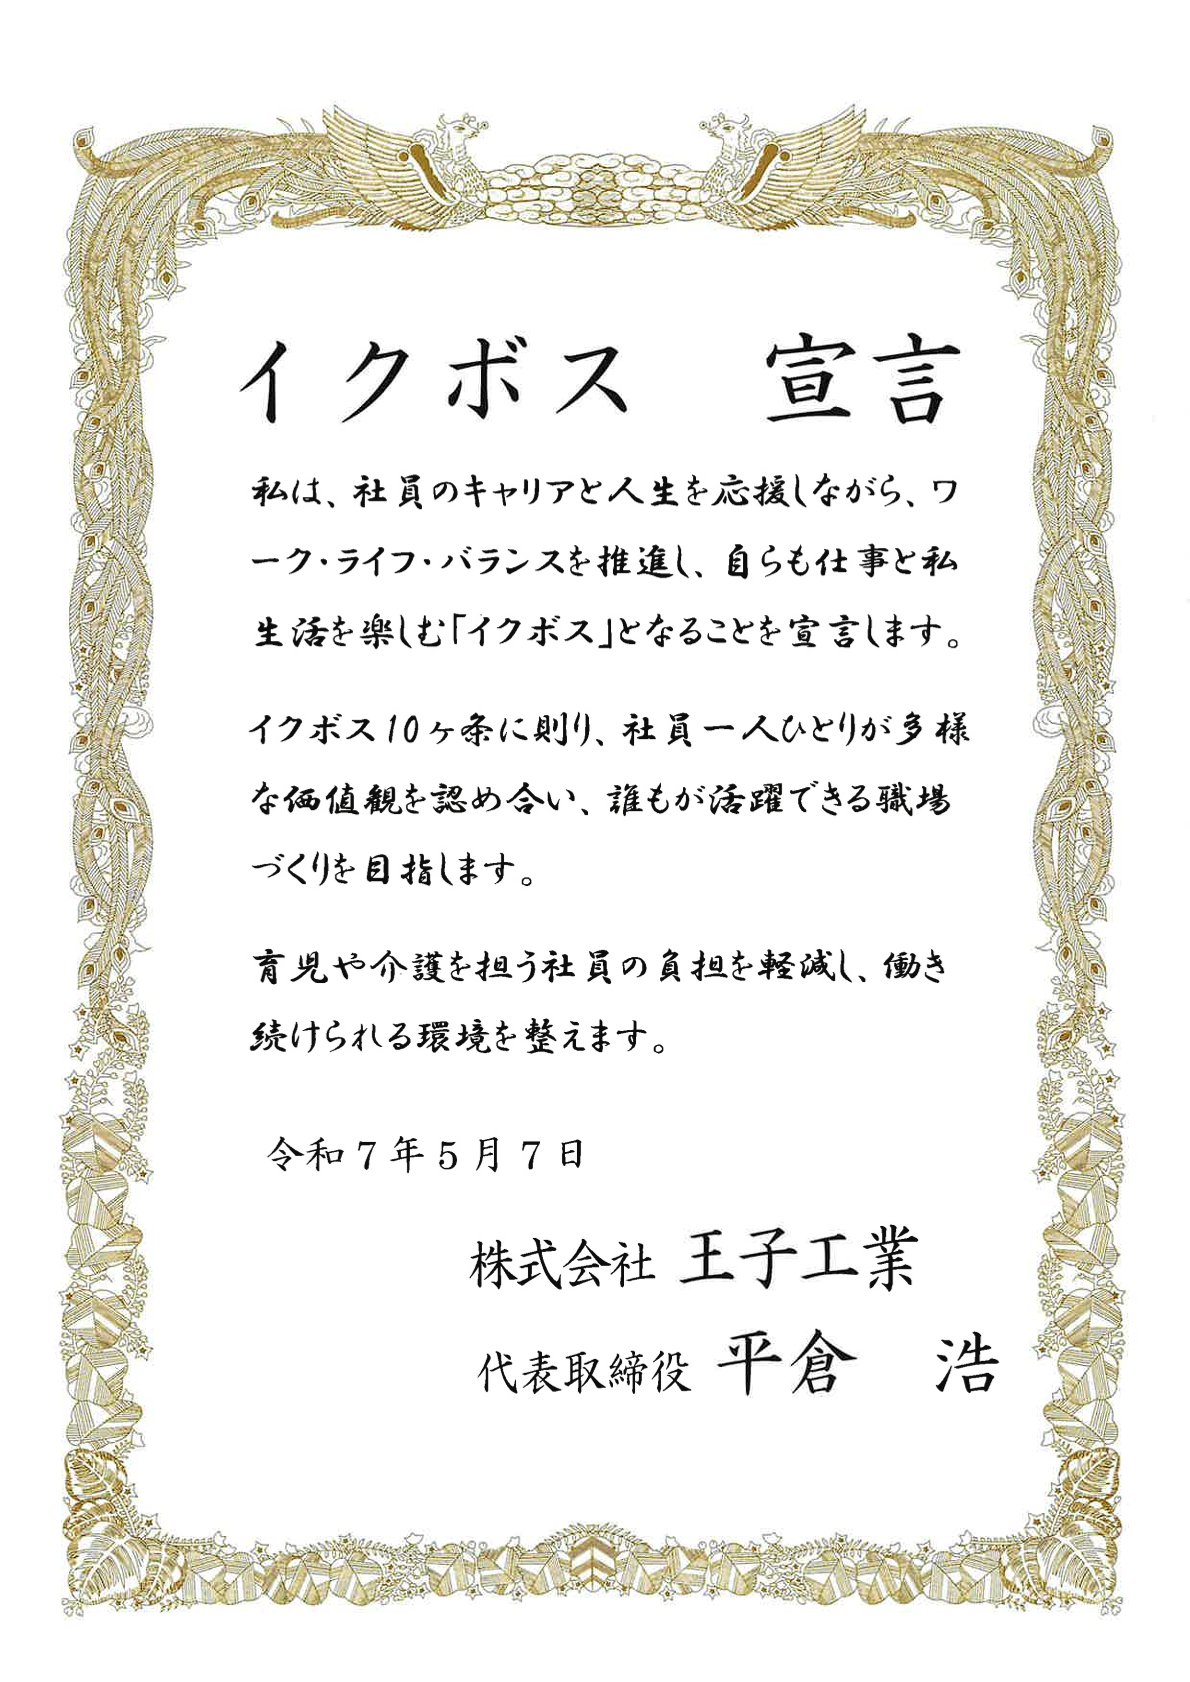 イクボス　宣言
私は、社員のキャリアと人生を応援しながら、ワ
ーク・ライフ・バランスを推進し、自らも仕事と私
生活を楽しむ「イクボス」となることを宣言します。
イクボス10ヶ条に則り、社員一人ひとりが多様
な価値観を認め合い、誰もが活躍できる職場
づくりを目指します。
育児や介護を担う社員の負担を軽減し、働き
続けられる環境を整えます。
令和７年５月７日
株式会社 王子工業
代表取締役 平倉　浩